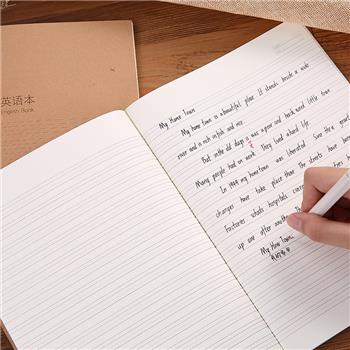 英语本
English Book
My Home Town
My home town is a beautiful place It stands beside a wide
river and is rich in fish and rice
But in the old days it was a poor and back ward little town
Many people had work They lived a hard life
In 1949 my home town was liberated great
changes have take place there The streets have been
Factories hospitals
up one after another
My Home Town.